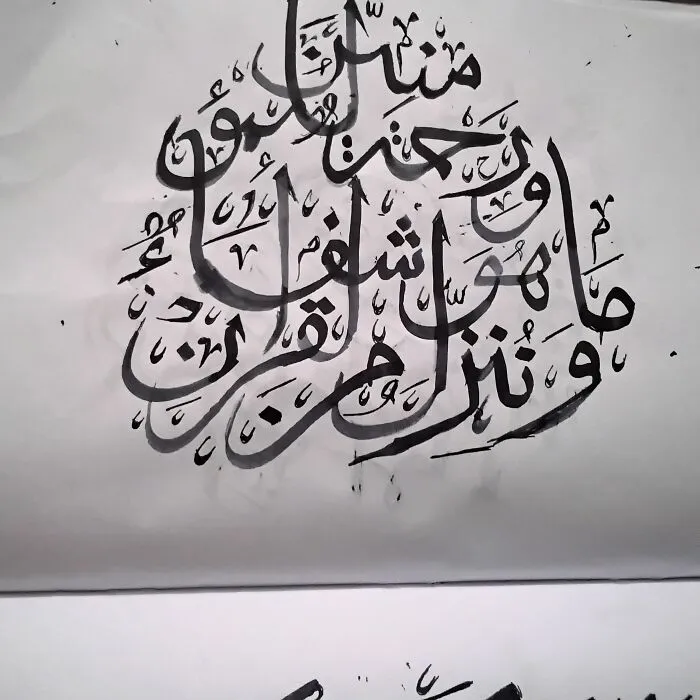 ونُنزل من القرآن
مَا هُوَ شفاءٌ
ورحمة للمؤ
منين